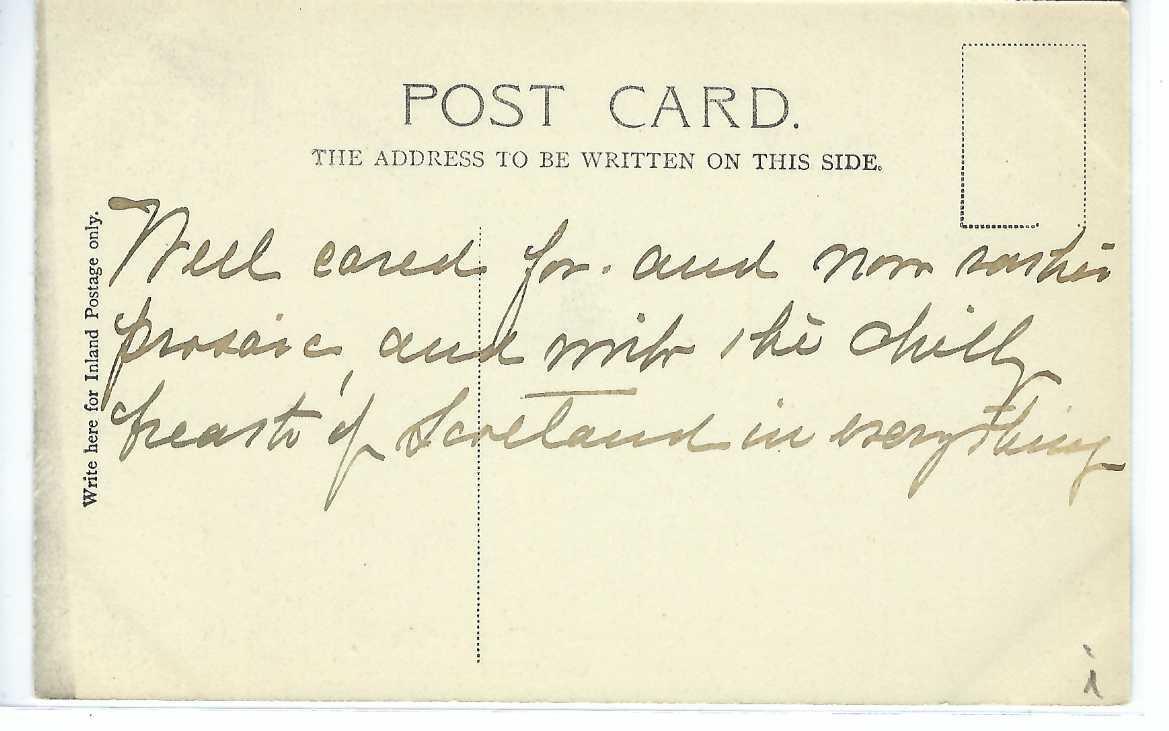 POST CARD.
THE ADDRESS TO BE WRITTEN ON THIS SIDE.
Write here for Inland Postage only.
Well cared for. and now rather
prosaic, and with the chilly
breath of Scotland in everything